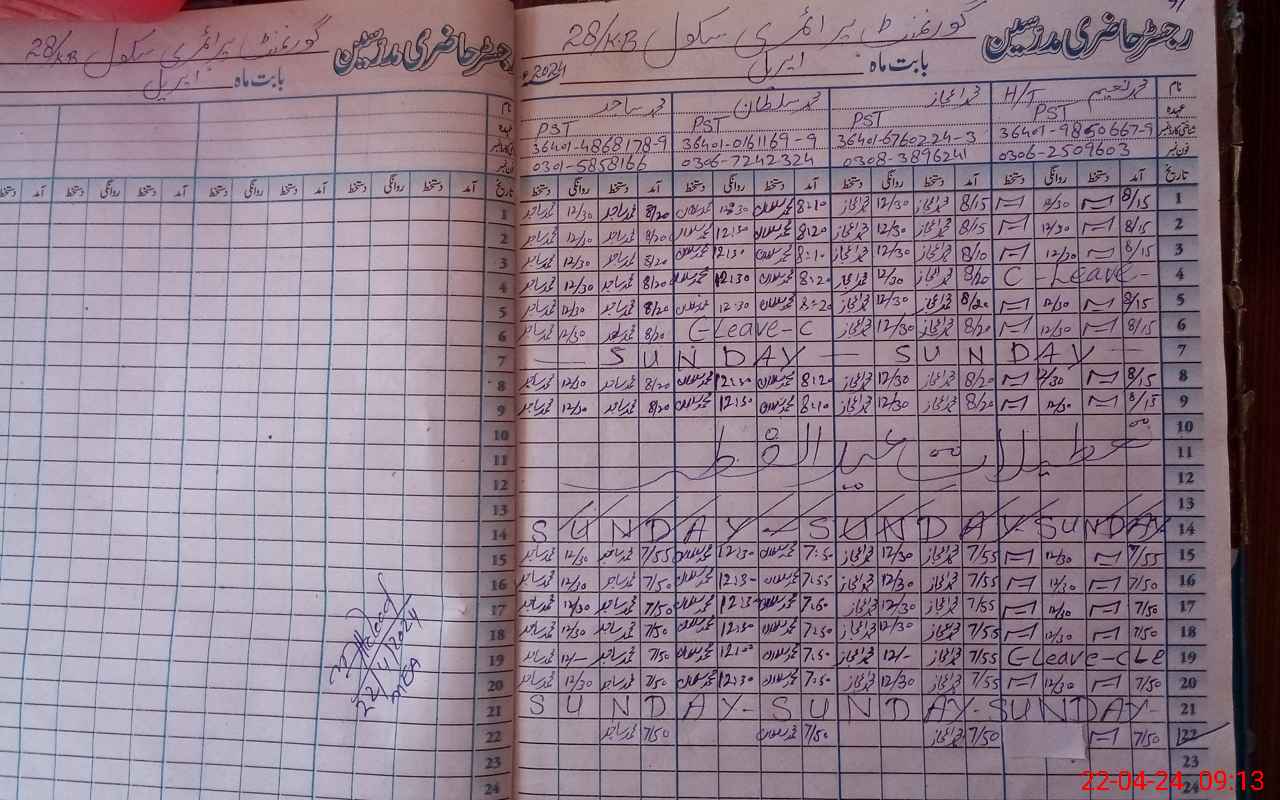 رجسٹر حاضری مدرسین گورنمنٹ پرائمری سکول 28/KB
بابت ماہ اپریل 2024ء
نام محمد نعیم H/T محمد اعجاز محمد سلطان محمد ساجد
عہدہ PST PST PST PST
شناختی کارڈ نمبر 36401-9850667-9 36401-6760224-3 36401-0161169-9 36401-4868178-9
فون نمبر 0306-2509603 0308-3896241 0306-7242324 0301-5858166
تاریخ آمد دستخط روانگی دستخط آمد دستخط روانگی دستخط آمد دستخط روانگی دستخط آمد دستخط روانگی دستخط
1 8/15 12/30 8/15 محمد اعجاز 12/30 محمد اعجاز 8:10 محمد سلطان 12:30 محمد سلطان 8/20 محمد ساجد 12/30 محمد ساجد
2 8/15 12/30 8/15 محمد اعجاز 12/30 محمد اعجاز 8:20 محمد سلطان 12:30 محمد سلطان 8/20 محمد ساجد 12/30 محمد ساجد
3 8/15 12/30 8/10 محمد اعجاز 12/30 محمد اعجاز 8:10 محمد سلطان 12:30 محمد سلطان 8/20 محمد ساجد 12/30 محمد ساجد
4 C - Leave - 8/20 محمد اعجاز 12/30 محمد اعجاز 8:20 محمد سلطان 12:30 محمد سلطان 8/20 محمد ساجد 12/30 محمد ساجد
5 8/15 12/30 8/20 محمد اعجاز 12/30 محمد اعجاز 8:20 محمد سلطان 12:30 محمد سلطان 8/20 محمد ساجد 12/30 محمد ساجد
6 8/15 12/30 8/20 محمد اعجاز 12/30 محمد اعجاز C-Leave-C 8/20 محمد ساجد 12/30 محمد ساجد
7 — SUNDAY — SUNDAY —
8 8/15 12/30 8/20 محمد اعجاز 12/30 محمد اعجاز 8:20 محمد سلطان 12:30 محمد سلطان 8/20 محمد ساجد 12/30 محمد ساجد
9 8/15 12/30 8/20 محمد اعجاز 12/30 محمد اعجاز 8:10 محمد سلطان 12:30 محمد سلطان 8/20 محمد ساجد 12/30 محمد ساجد
10
11 تعطیلات عید الفطر
12
13
14 SUNDAY - SUNDAY - SUNDAY
15 7/55 12/30 7/55 محمد اعجاز 12/30 محمد اعجاز 7:50 محمد سلطان 12:30 محمد سلطان 7/55 محمد ساجد 12/30 محمد ساجد
16 7/50 12/30 7/55 محمد اعجاز 12/30 محمد اعجاز 7:55 محمد سلطان 12:30 محمد سلطان 7/50 محمد ساجد 12/30 محمد ساجد
17 7/50 12/30 7/55 محمد اعجاز 12/30 محمد اعجاز 7:50 محمد سلطان 12:30 محمد سلطان 7/50 محمد ساجد 12/30 محمد ساجد
18 7/50 12/30 7/55 محمد اعجاز 12/30 محمد اعجاز 7:50 محمد سلطان 12:30 محمد سلطان 7/50 محمد ساجد 12/30 محمد ساجد
19 C-Leave-CLe 7/55 محمد اعجاز 12/- محمد اعجاز 7:50 محمد سلطان 12:00 محمد سلطان 7/50 محمد ساجد 12/- محمد ساجد
20 7/50 12/30 7/55 محمد اعجاز 12/30 محمد اعجاز 7:50 محمد سلطان 12:30 محمد سلطان 7/50 محمد ساجد 12/30 محمد ساجد
21 SUNDAY - SUNDAY - SUNDAY -
22 7/50 7/50 محمد اعجاز 7/50 محمد سلطان 7/50 محمد ساجد
23
24
رجسٹر حاضری مدرسین گورنمنٹ پرائمری سکول 28/K.B
بابت ماہ اپریل
نام
عہدہ
شناختی کارڈ نمبر
فون نمبر
تاریخ آمد دستخط روانگی دستخط آمد دستخط روانگی دستخط آمد دستخط روانگی دستخط آمد
1
2
3
4
5
6
7
8
9
10
11
12
13
14
15
16
17
18
19
20
21
22
23
24
22/4/2024
MEA
22-04-24, 09:13